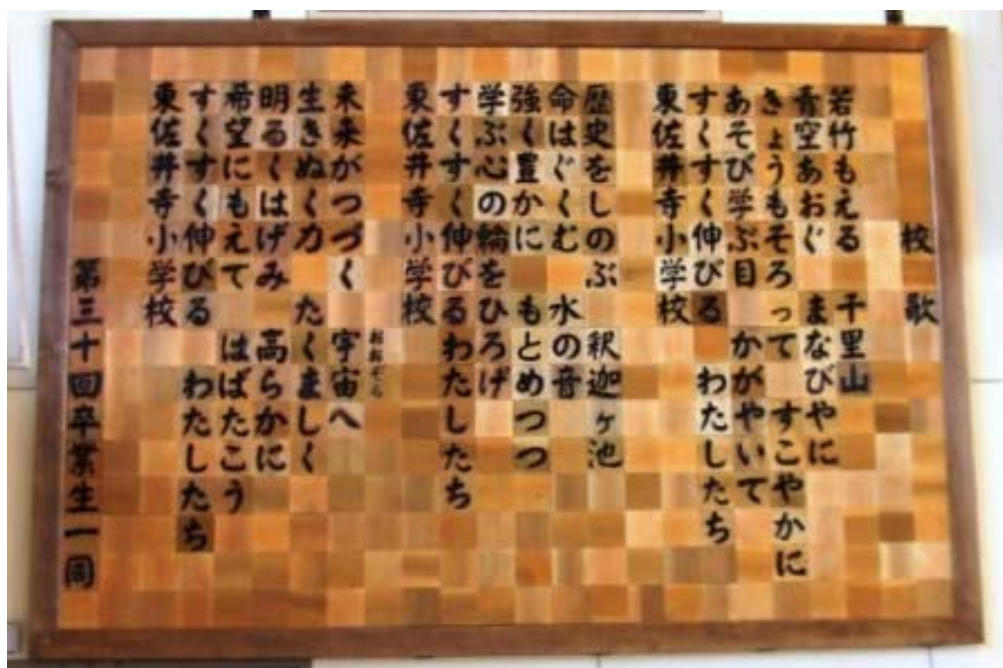 校歌
若竹もえる 千里山
青空あおぐ まなびやに
きょうもそろって すこやかに
あそび学ぶ目 かがやいて
すくすく伸びる わたしたち
東佐井寺小学校
歴史をしのぶ 釈迦ヶ池
命はぐくむ 水の音
強く豊かに もとめつつ
学ぶ心の輪をひろげ
すくすく伸びるわたしたち
東佐井寺小学校
未来がつづく 宇宙へ
おおぞら
生きぬく力 たくましく
明るくはげみ 高らかに
希望にもえて はばたこう
すくすく伸びる わたしたち
東佐井寺小学校
第三十回卒業生一同